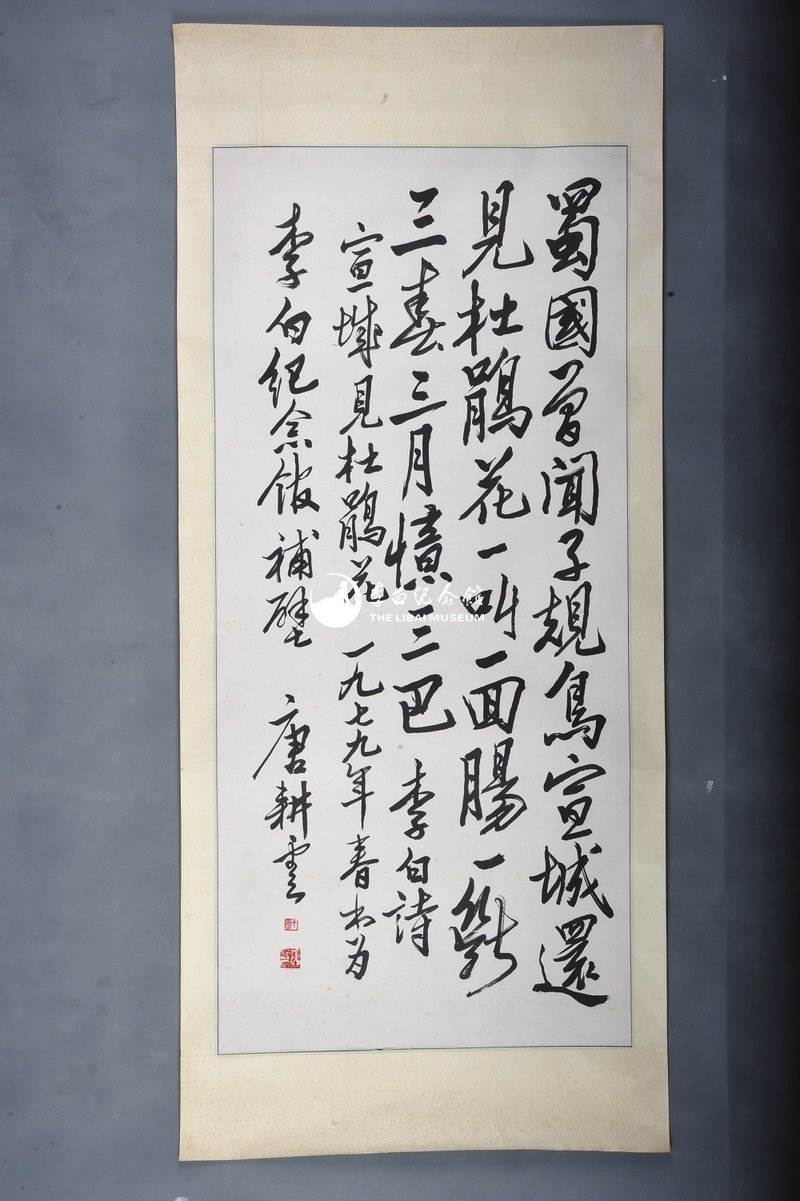 蜀國曾聞子規鳥宣城還
見杜鵑花一叫一回腸一斷
三春三月憶三巴 李白詩
宣城見杜鵑花 一九七九年春书为
李白纪念馆補壁 唐耕雲
李白纪念馆
THE LIBAI MUSEUM